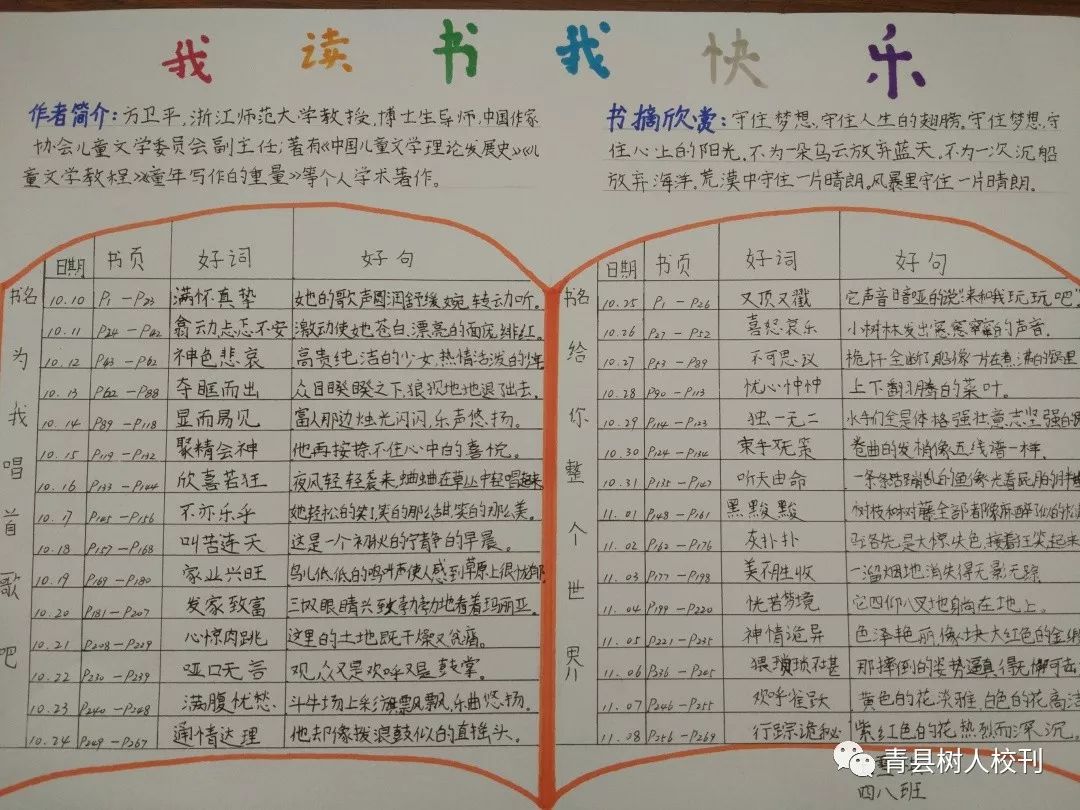 我读书我快乐
作者简介:方卫平,浙江师范大学教授,博士生导师,中国作家
协会儿童文学委员会副主任;著有《中国儿童文学理论发展史》《儿
童文学教程》《童年写作的重量》等个人学术著作。
书摘欣赏:守住梦想,守住人生的翅膀。守住梦想,守
住心上的阳光,不为一朵乌云放弃蓝天,不为一次沉船
放弃海洋。荒漠中守住一片晴朗。风暴里守住一片晴朗。
书名 为我唱首歌吧
日期 书页 好词 好句
10.10 P1—P23 满怀真挚 她的歌声圆润舒缓,婉转动听。
10.11 P24—P42 翕动 忐忑不安 激动使她苍白、漂亮的面庞绯红。
10.12 P43—P62 神色悲哀 高贵纯洁的少女,热情活泼的
10.13 P62—P88 夺眶而出 众目睽睽之下,狼狈地退了出去。
10.14 P89—P118 显而易见 富人那边烛光闪闪,乐声悠扬。
10.15 P119—P132 聚精会神 他再按捺不住心中的喜悦。
10.16 P133—P144 欣喜若狂 夜风轻轻袭来,蛐蛐在草丛中轻唱起来
10.17 P145—P156 不亦乐乎 她轻松的笑了,笑的那么甜,笑的那么美。
10.18 P157—P168 叫苦连天 这是一个初秋的宁静的早晨。
10.19 P169—P180 家业兴旺 鸟儿低低的鸣叫声使人感到草原上很忧郁
10.20 P181—P207 发家致富 三双眼睛兴致勃勃地看着玛丽亚。
10.21 P208—P229 心惊肉跳 这里的土地既干燥又贫瘠。
10.22 P230—P239 哑口无言 观众又是欢呼又是鼓掌。
10.23 P240—P248 满腹忧愁 斗牛场上彩旗飘飘,乐曲悠扬。
10.24 P249—P267 通情达理 他却像拨浪鼓似的直摇头。
书名 给你整个世界
日期 书页 好词 好句
10.25 P1—P26 又顶又戳 它声音喑哑的说:"来和我玩玩吧"
10.26 P27—P52 喜怒哀乐 小树林发出窸窸窣窣的声音。
10.27 P53—P89 不可思议 桅杆全断了,船像一片在煮沸的锅里
10.28 P90—P113 忧心忡忡 上下翻腾的菜叶。
10.29 P114—P123 独一无二 水手们全是体格强壮,意志坚强的
10.30 P124—P134 束手无策 卷曲的发梢像五线谱一样。
10.31 P135—P147 听天由命 一条条活蹦乱跳的鱼像光着屁股的胖
11.01 P148—P161 黑黢黢 树枝和树藤全部都像麻醉似的
11.02 P162—P176 灰扑扑 起先是大惊失色,接着狂笑起来
11.03 P177—P198 美不胜收 一溜烟地消失得无影无踪
11.04 P199—P220 恍若梦境 它四仰八叉地躺在地上。
11.05 P221—P235 神情诡异 色泽艳丽像块大红色的金缎
11.06 P236—P245 猥琐不堪 那摔倒的姿势逼真得无懈可击
11.07 P246—P255 欢呼雀跃 黄色的花淡雅,白色的花高洁
11.08 P256—P269 行踪诡秘 紫红色的花热烈而深沉。
四八班
青县树人校刊